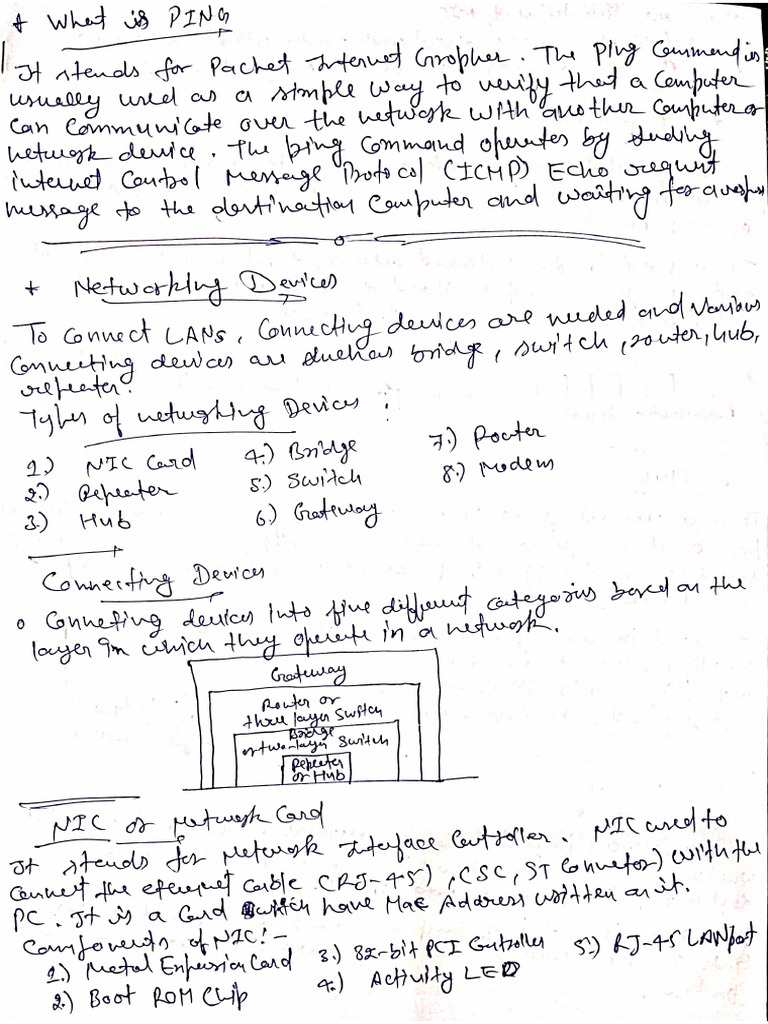 + What is PING
It stends for Packet Internet Gropher. The Ping Command is
usually used as a simple way to verify that a Computer
Can Communicate over the network with another Computer or
network device. The ping Command operates by sending
internet Control Message Protocol (ICMP) Echo request
message to the destination Computer and waiting for a respons
+ Networking Devices
To Connect LANs, Connecting devices are needed and various
Connecting devices are such as bridge, switch, router, hub,
repeater.
Types of networking Devices :
1.) NIC Card 4.) Bridge 7.) Router
2.) Repeater 5.) Switch 8.) Modem
3.) Hub 6.) Gateway
Connecting Devices
o Conneting devices into five different categories based on the
layer in which they operate in a network.
Gateway
Router or
three layer Switch
Bridge
or two-layer Switch
Repeater
or Hub
NIC or Network Card
It stends for Network Interface Controller. NIC used to
Connect the ethernet cable (RJ-45), (SC, ST Connetor) with the
PC. It is a Card which have Mac Address written on it.
Components of NIC:-
1.) Metal Expension Card 3.) 32-bit PCI Controller 5.) RJ-45 LAN port
2.) Boot ROM Chip 4.) Activity LED